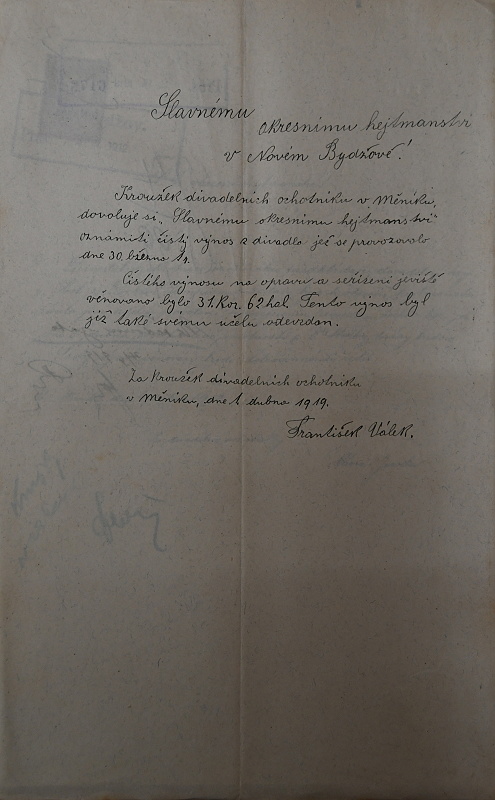 Slavnému
okresnímu hejtmanství
v Novém Bydžově!
Kroužek divadelních ochotníku v Měníku,
dovoluje si „Slavnému okresnímu hejtmanství"
oznámiti čistý výnos z divadla jež se provozovalo
dne 30. března t.r.
Čistého výnosu na opravu a seřízení jeviště
věnováno bylo 31. Kor. 62 hal. Tento výnos byl
již také svému účelu odevzdán.
Za kroužek divadelních ochotníku
v Měníku, dne 1 dubna 1919.
František Válek.